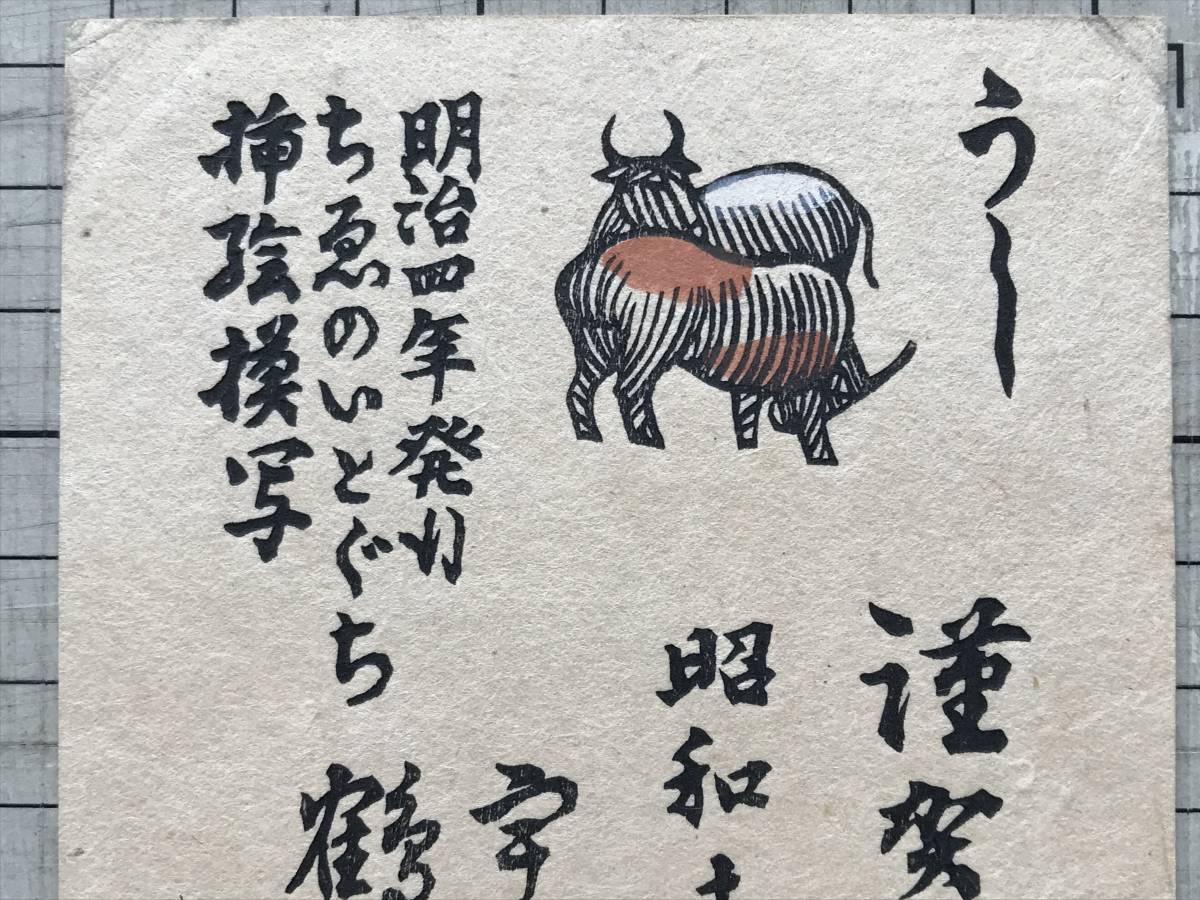 うし
謹賀
昭和十
明治四年発刊
ちゑのいとぐち
挿絵模写
宇
鶴